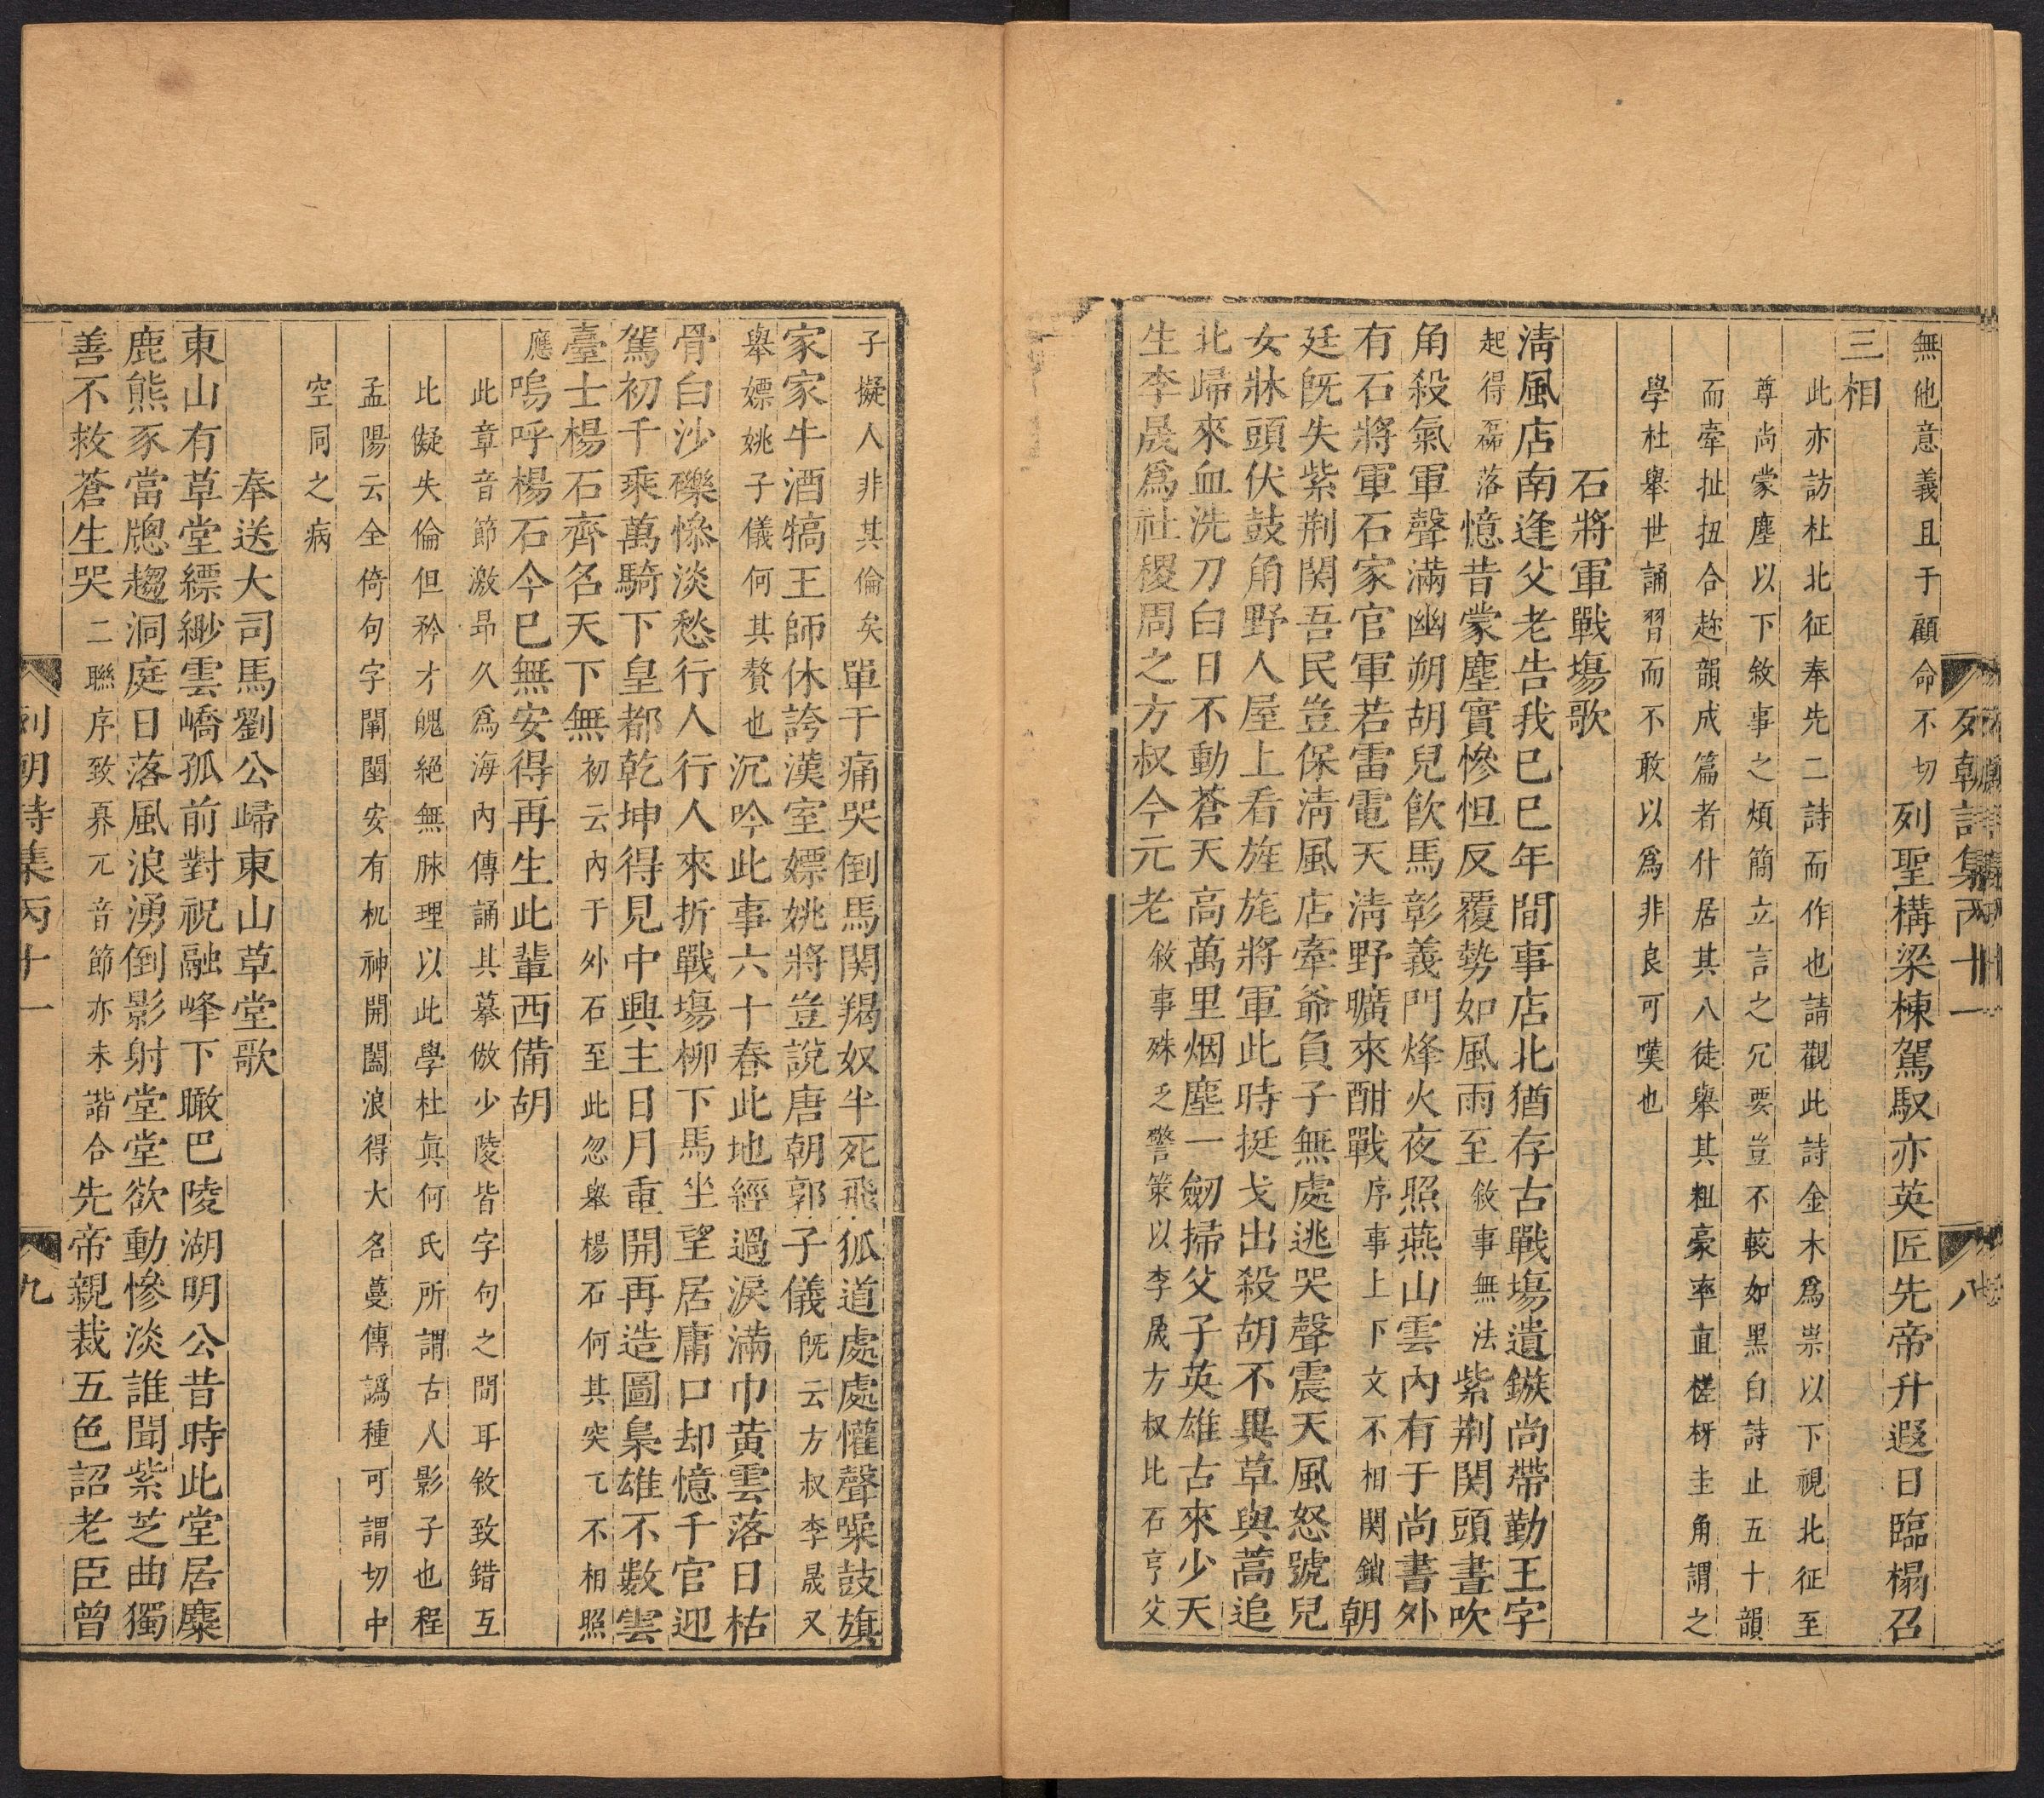 列朝詩集丙十一
八
無他意義且于顧命不切列聖構梁棟駕馭亦英匠先帝升遐日臨榻召
三相
此亦訪杜北征奉先二詩而作也請觀此詩金木為祟以下視北征至
尊尚蒙塵以下敘事之煩簡立言之冗要豈不較如黑白詩止五十韻
而牽扯扭合趂韻成篇者什居其八徒舉其粗豪率直槎枒圭角謂之
學杜舉世誦習而不敢以爲非良可嘆也
石將軍戰場歌
清風店南逢父老告我已巳年間事店北猶存古戰場遺鏃尚帶勤王字
起得磊落憶昔蒙塵實慘怛反覆勢如風雨至敘事無法紫荆関頭晝吹
角殺氣軍聲滿幽朔胡兒飲馬彰義門烽火夜照燕山雲內有于尚書外
有石將軍石家官軍若雷電天清野曠來酣戰序事上下文不相関鎖朝
廷旣失紫荆関吾民豈保清風店牽爺負子無處逃哭聲震天風怒號兒
女牀頭伏鼓角野人屋上看旌旄將軍此時挺戈出殺胡不異草與蒿追
北歸來血洗刀白日不動蒼天高萬里烟塵一劒掃父子英雄古來少天
生李晟爲社稷周之方叔今元老敘事殊乏警策以李晟方叔比石亨父
子擬人非其倫矣單于痛哭倒馬関羯奴半死飛狐道處處懽聲噪鼓旗
家家牛酒犒王師休誇漢室嫖姚將豈說唐朝郭子儀旣云方叔李晟又
舉嫖姚子儀何其贅也沉吟此事六十春此地經過淚滿巾黃雲落日枯
骨白沙礫慘淡愁行人行人來折戰場柳下馬坐望居庸口却憶千官迎
駕初千乘萬騎下皇都乾坤得見中興主日月重開再造圖梟雄不數雲
臺士楊石齊名天下無初云內于外石至此忽舉楊石何其突兀不相照
應嗚呼楊石今已無安得再生此輩西備胡
此章音節激昂久爲海內傳誦其摹倣少陵皆字句之間耳敘致錯互
比儗失倫但矜才魄絕無脉理以此學杜眞何氏所謂古人影子也程
孟陽云全倚句字闈闔安有机神開闔浪得大名蔓傳譌種可謂切中
空同之病
奉送大司馬劉公歸東山草堂歌
東山有草堂縹緲雲嶠孤前對祝融峰下瞰巴陵湖明公昔時此堂居麋
鹿熊豕當牕趨洞庭日落風浪湧倒影射堂堂欲動慘淡誰聞紫芝曲獨
善不救蒼生哭二聯序致冗音節亦未諧合先帝親裁五色詔老臣曾
列朝詩集丙十一
九